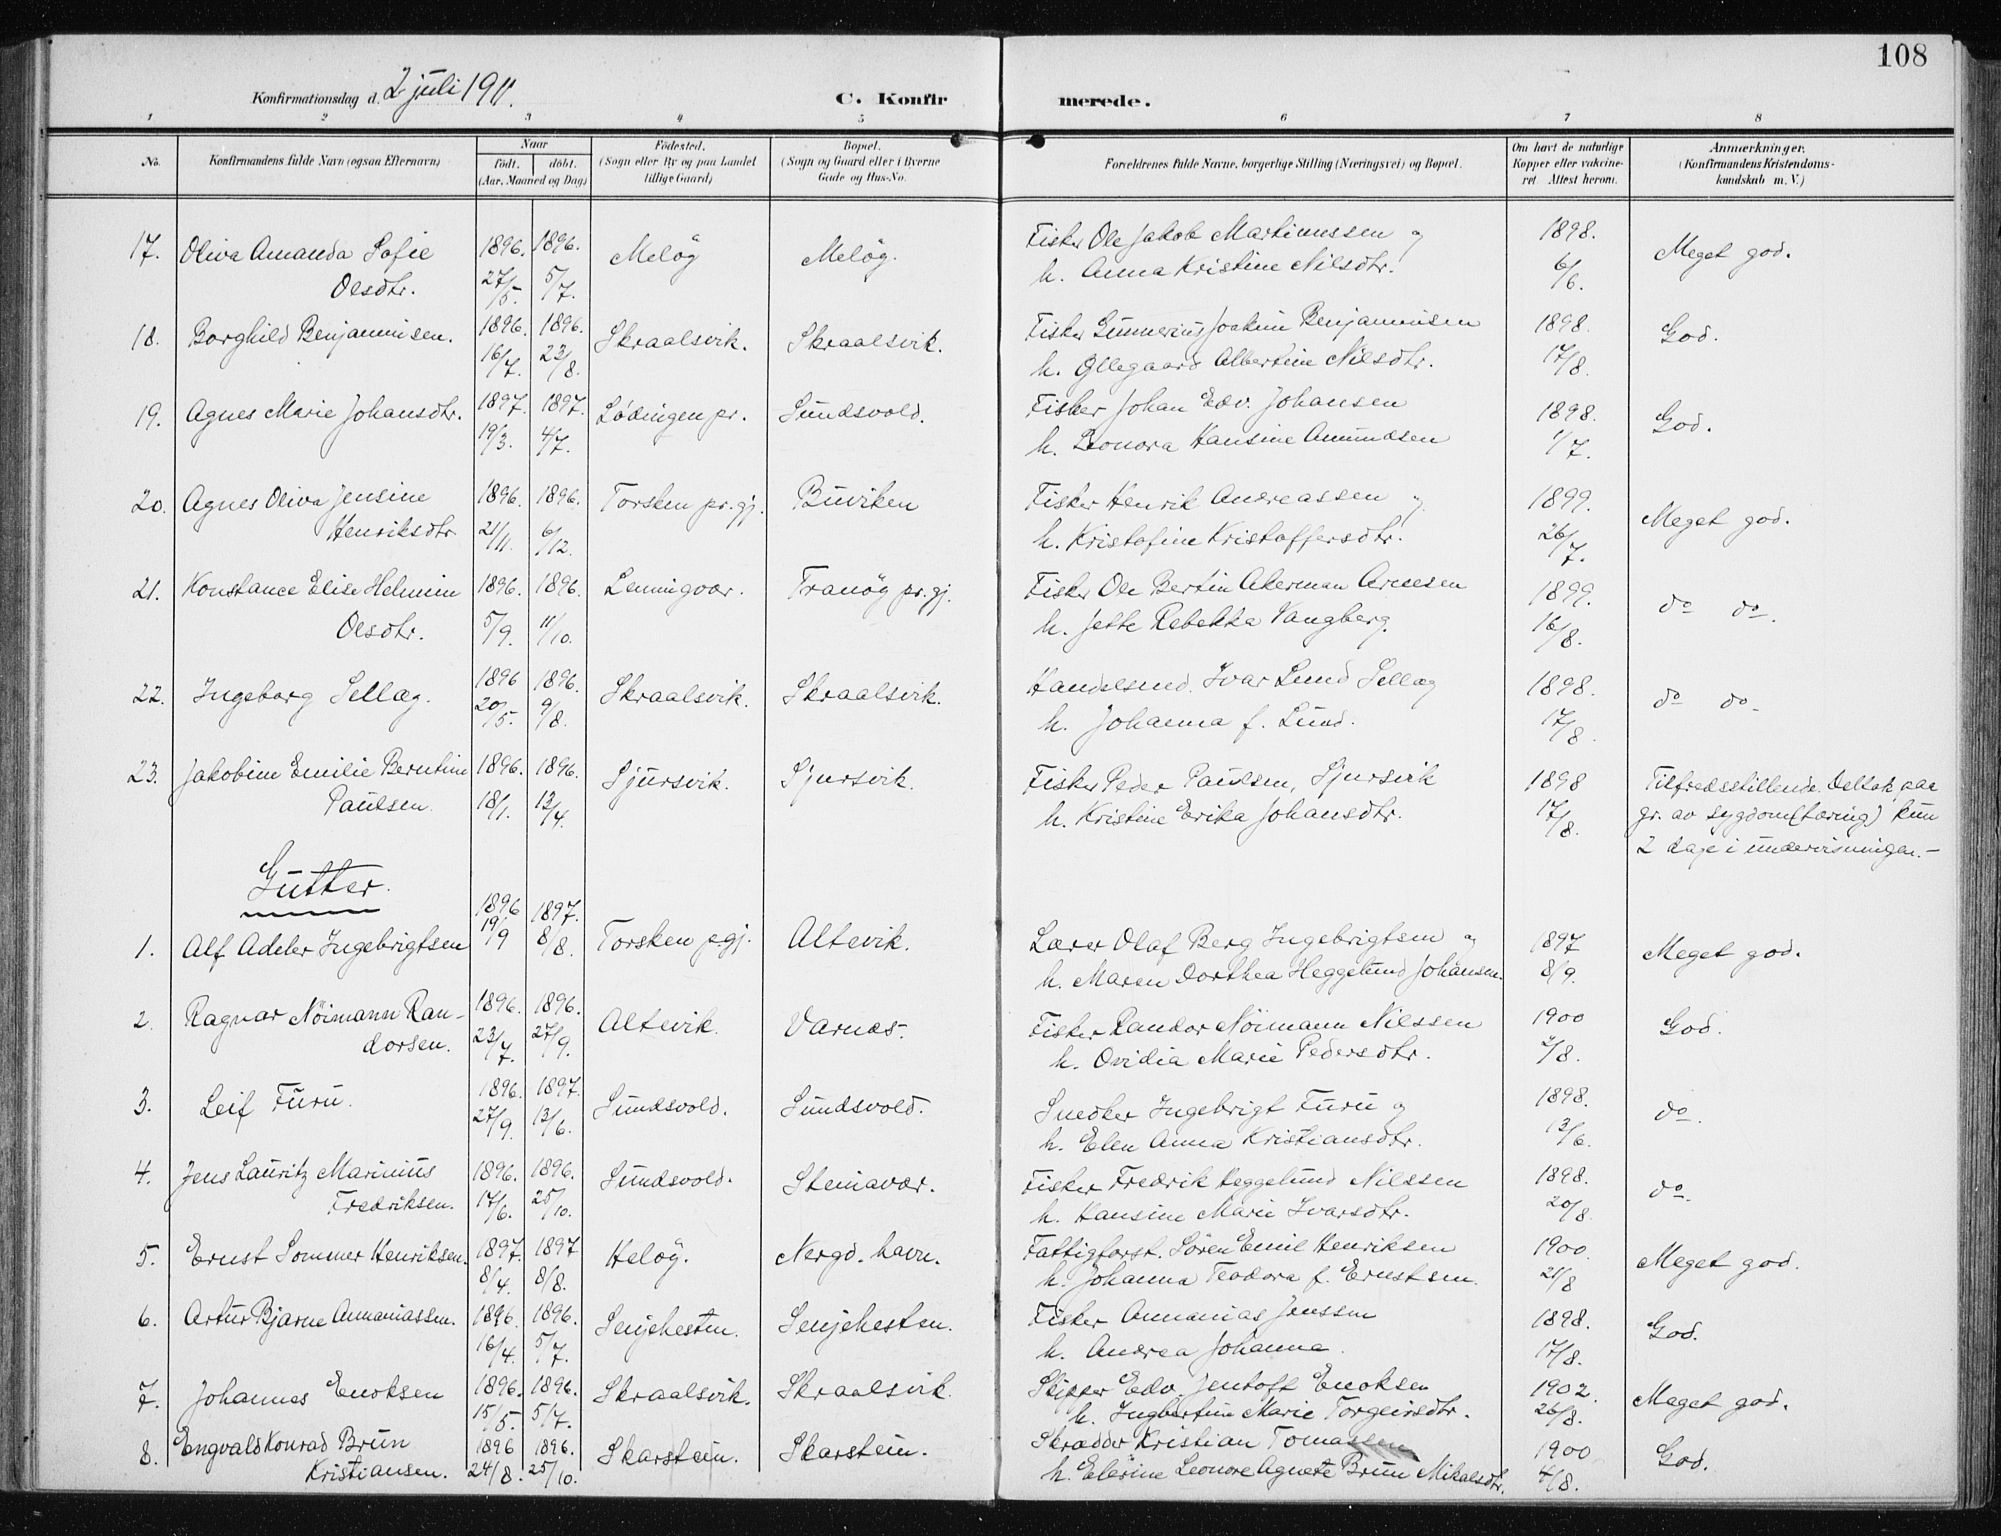 108
Konfirmationsdag d. 2 juli 1911.
C. Konfirmerede.
1 2 3 4 5 6 7 8
No. Konfirmandens fulde Navn (ogsaa Efternavn) Naar født. døbt. (Aar, Maaned og Dag) Fødested. (Sogn eller By og paa Landet tillige Gaard) Bopæl. (Sogn og Gaard eller i Byerne Gade og Hus-No. Forældrenes fulde Navne, borgerlige Stilling (Næringsvei) og Bopæl. Om havt de naturlige Kopper eller vakcineret. Attest herom. Anmærkninger. (Konfirmandens Kristendomskundskab m. V.)
17. Oliva Amanda Sofie 1896. 1896. Meløy Meløy. Fisker Ole Jakob Martinussen og 1898. Meget god.
Olsdtr. 27/5. 5/7. h. Anna Kristine Nilsdtr. 6/6.
18. Borghild Benjaminsen. 1896. 1896. Skraalsvik. Skraalsvik. Fisker Gunnerius Joakim Benjaminsen 1898. God.
16/7. 23/8. h. Ollegaard Albertine Nilsdtr. 17/8.
19. Agnes Marie Johansdtr. 1897. 1897. Lødingen pr. Sundsvold. Fisker Johan Edv. Johansen 1898. God.
19/3. 4/7. h. Leonora Hansine Amundsen 1/7.
20. Agnes Oliva Jensine 1896. 1896. Torsken pr.gj. Buviken Fisker Henrik Andreassen og 1899. Meget god.
Henriksdtr 21/11. 6/12. h. Kristofine Kristoffersdtr. 26/7.
21. Konstance Elise Helmine 1896. 1896. Lemmingvær. Tranøy pr.gj. Fisker Ole Bertin Akerman Arnesen 1899. do do.
Olsdtr. 5/9. 11/10. h. Jette Rebekka Vangberg. 16/8.
22. Ingeborg Sellæg. 1896 1896. Skraalsvik. Skraalsvik. Handelsmd. Ivar Lund Sellæg 1898. do do.
20/5. 9/8. h. Johanna f. Lund. 17/8.
23. Jakobine Emilie Berntine 1896. 1896. Sjursvik. Sjursvik. Fisker Peder Paulsen, Sjursvik 1898 Tilfredsstillende. Deltok paa
Paulsen. 18/1. 13/4. h. Kristine Erika Johansdtr. 17/8. gr. av sygdom (tæring) kun
2 dage i undervisningen.-
Gutter.
1. Alf Adeler Ingebrigtsen 1896 1897. Torsken p.gj. Altevik. Lærer Olaf Berg Ingebrigtsen og 1897 Meget god.
19/9 8/8. h. Maren Dorthea Heggelund Johansen. 8/9.
2. Ragnar Nöimann Ran- 1896. 1896. Altevik. Varnæs. Fisker Randor Nöimann Nilssen 1900 God.
dorsen. 23/7. 27/9. h. Ovidia Marie Pedersdtr. 2/8.
3. Leif Furu. 1896. 1897. Sundsvold. Sundsvold. Snedker Ingebrigt Furu og 1898. do.
27/9. 13/6. h. Elen Anna Kristiansdtr. 13/6.
4. Jens Lauritz Marinius 1896. 1896. Sundsvold. Steinavær. Fisker Fredrik Heggelund Nilssen 1898. do.
Fredriksen. 17/6. 25/10. h. Hansine Marie Ivarsdtr. 20/8.
5. Ernst Sommer Henriksen. 1897. 1897 Heløy. Nergd. havn. Fattigforst. Søren Emil Henriksen 1900. Meget god.
8/4. 8/8. h. Johanna Teodora f. Ernstsen. 21/8
6. Artur Bjarne Annaniassen. 1896. 1896. Senjehesten. Senjehesten. Fisker Annanias Jenssen 1898. God.
16/4. 5/7. h. Andrea Johanna. 17/8.
7. Johannes Enoksen 1896. 1896. Skraalsvik. Skraalsvik. Skipper Edv. Jentoft Enoksen 1902. Meget god.
15/5. 5/7. h. Ingbertine Marie Torgeirsdtr. 26/8.
8. Engvald Konrad Brun 1896 1896. Skarstein. Skarstein. Skrædder Kristian Tomassen 1900 God.
Kristiansen. 24/8. 25/10. h. Elerine Leonore Agnete Brun Mikalsdtr. 4/8.